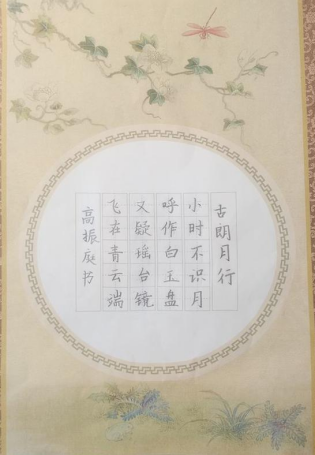 古朗月行
小时不识月
呼作白玉盘
又疑瑶台镜
飞在青云端
高振庭书